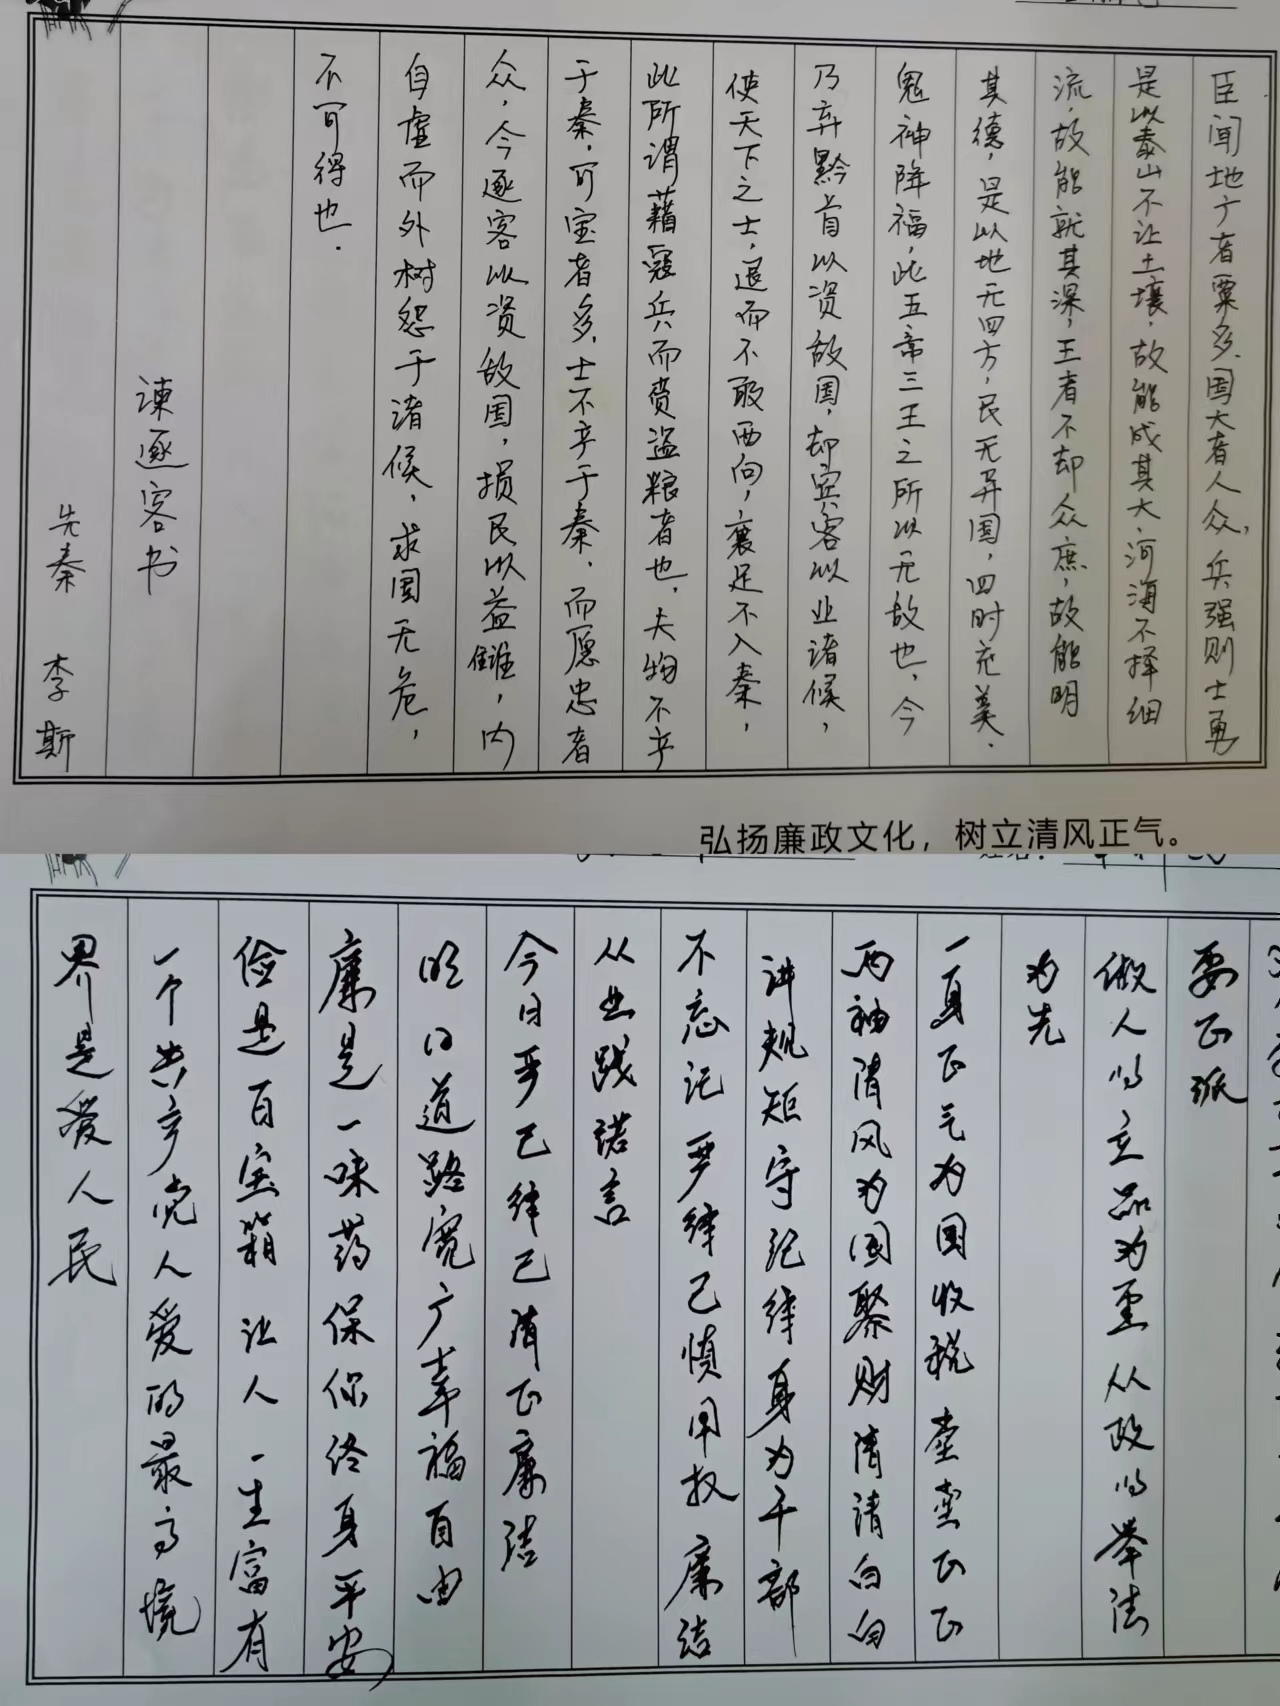 臣闻地广者粟多，国大者人众，兵强则士勇
是以泰山不让土壤，故能成其大，河海不择细
流，故能就其深，王者不却众庶，故能明
其德，是以地无四方，民无异国，四时充美，
鬼神降福，此五帝三王之所以无敌也，今
乃弃黔首以资敌国，却宾客以业诸候，
使天下之士，退而不敢西向，裹足不入秦，
此所谓藉寇兵而赍盗粮者也，夫物不产
于秦，可宝者多，士不产于秦，而愿忠者
众，今逐客以资敌国，损民以益雠，内
自虚而外树怨于诸候，求国无危，
不可得也．
谏逐客书
先秦 李斯
弘扬廉政文化，树立清风正气。
要正派
做人以立品为重 从政以奉法
为先
一身正气为国收税 堂堂正正
两袖清风为国聚财清清白白
讲规矩守纪律身为干部
不忘记 严律己慎用权 廉洁
从业践诺言
今日严己律己清正廉洁
明日道路宽广幸福自由
廉是一味药保你终身平安
俭是百宝箱 让人一生富有
一个共产党人爱的最高境
界是爱人民